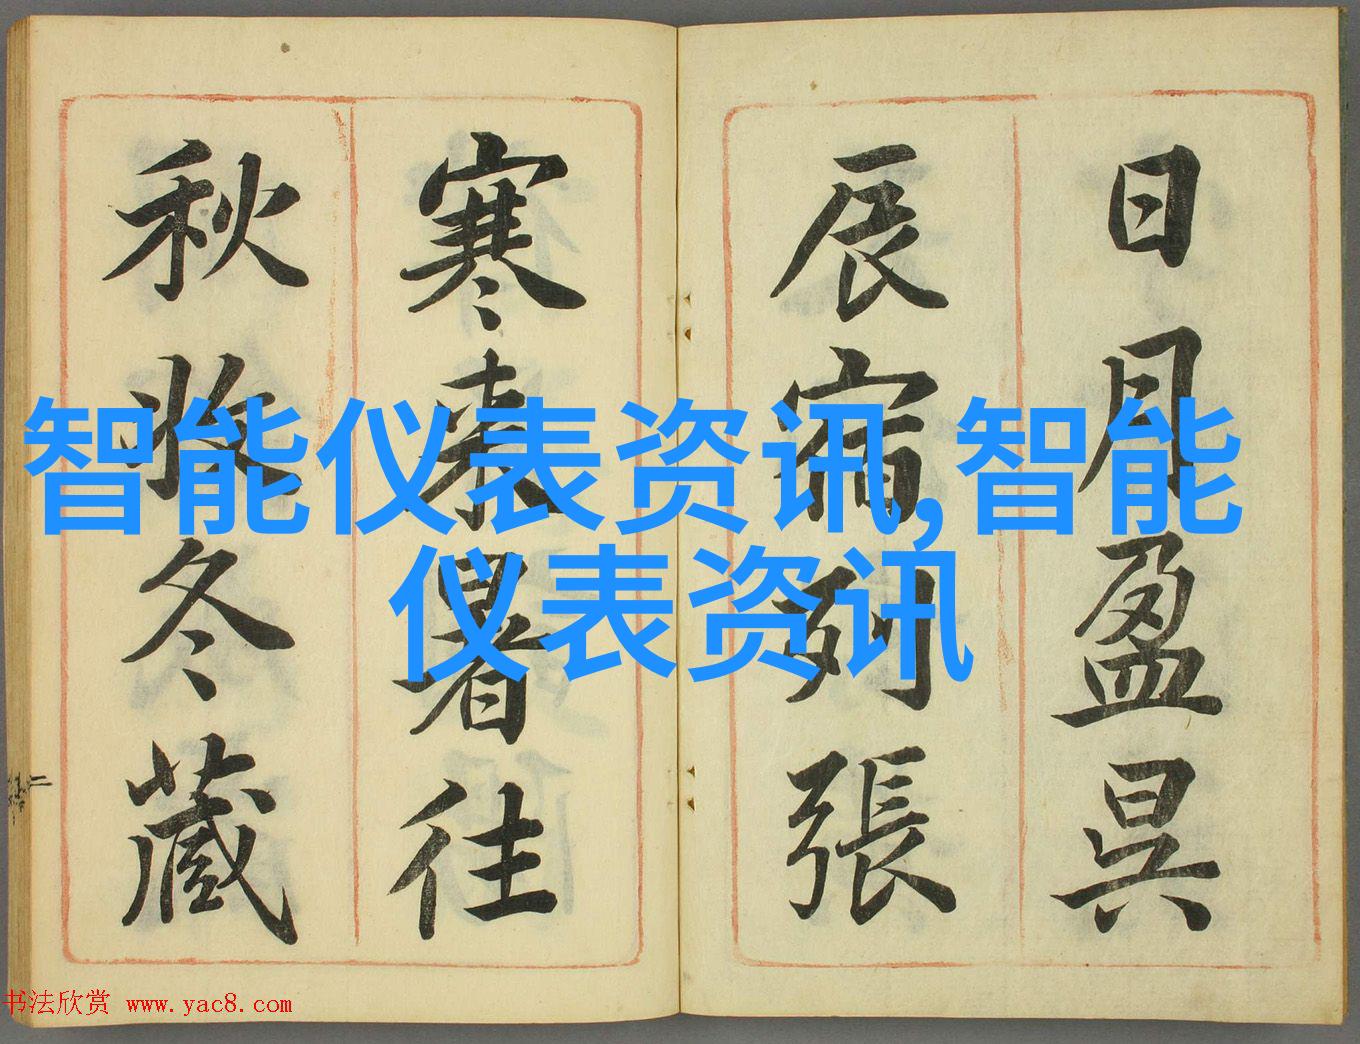 日月盈昃
辰宿列張
寒來暑往
秋收冬藏
智能仪表资讯,智能
仪表资讯
书法欣赏 www.yac8.com